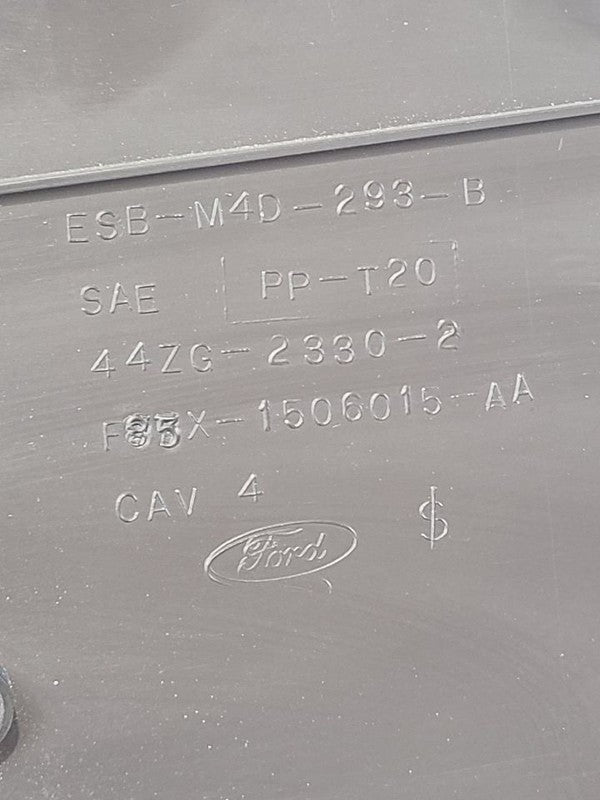 ESB-M4D-293-B
SAE PP-T20
44ZG-2330-2
CAV 4 $
Ford